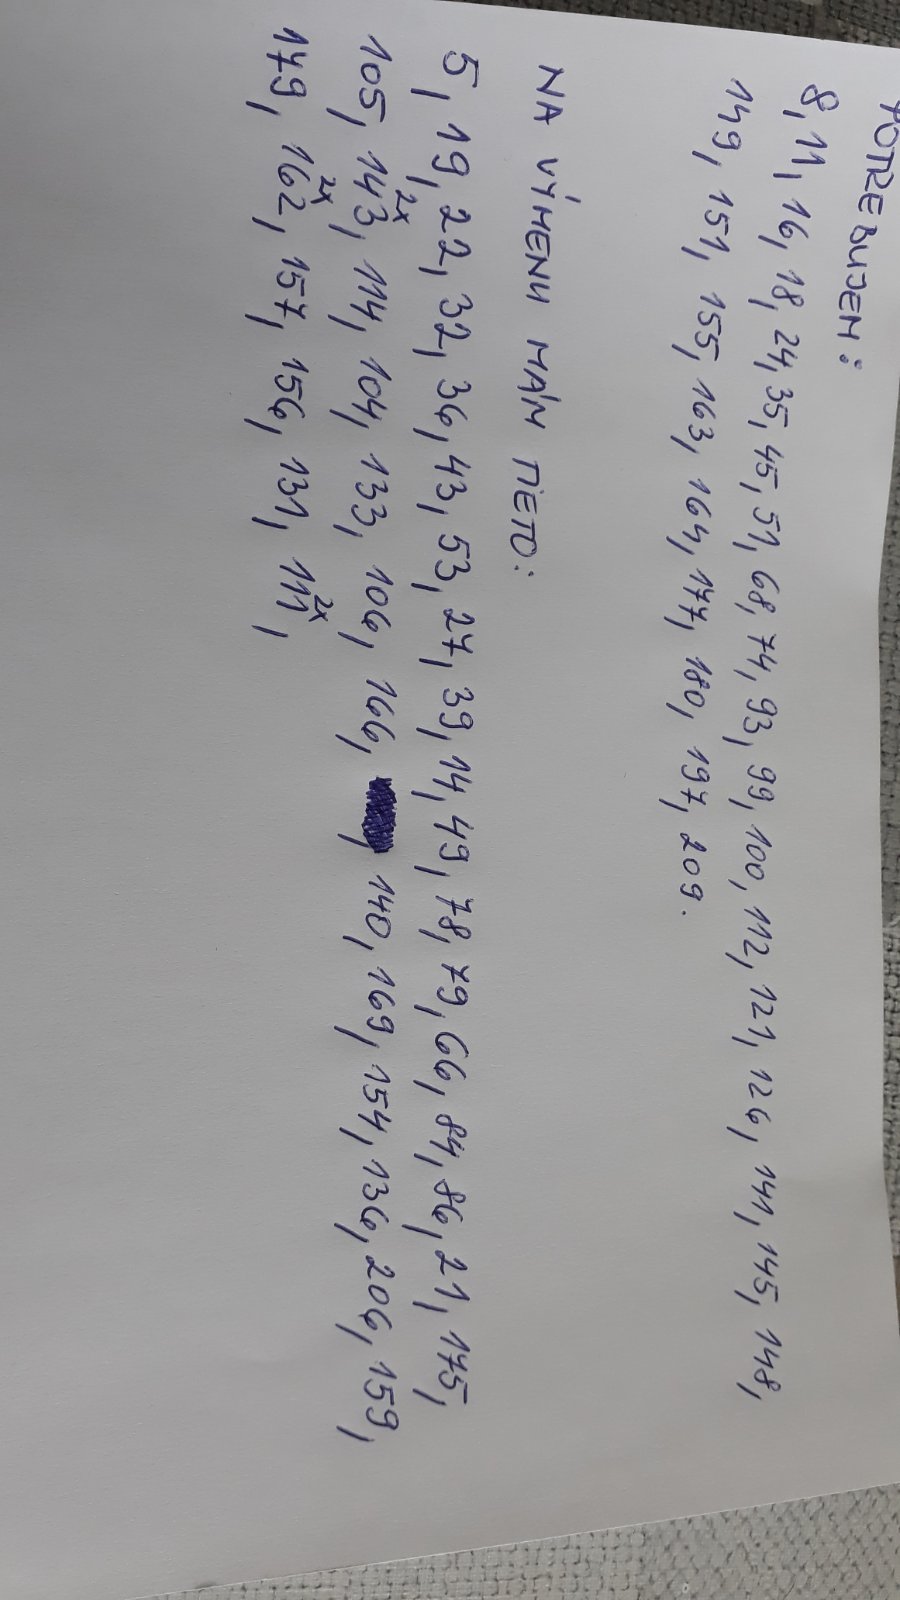 POTREBUJEM:
8, 11, 16, 18, 24, 35, 45, 51, 68, 74, 93, 99, 100, 112, 121, 126, 141, 145, 148,
149, 151, 155, 163, 164, 177, 180, 197, 209.
NA VÝMENU MÁM TIETO:
5, 19, 22, 32, 36, 43, 53, 27, 39, 14, 49, 78, 79, 66, 84, 86, 21, 175,
105, 143, 2x 114, 104, 133, 106, 166, , 140, 169, 154, 136, 206, 159,
179, 162, 2x 157, 156, 131, 111, 2x